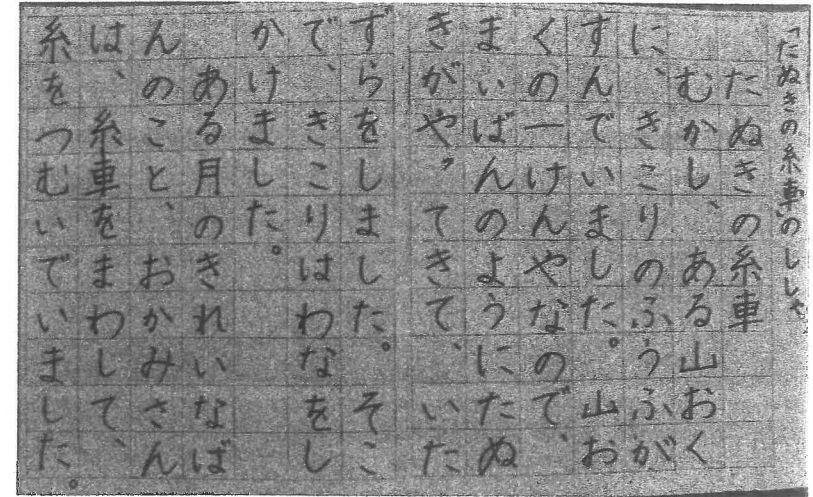 「たぬきの糸車」のししゃ
たぬきの糸車
むかし、ある山おく
に、きこりのふうふが
すんでいました。山お
くの一けんやなので、
まいばんのようにたぬ
きがやってきて、いた
ずらをしました。そこ
で、きこりはわなをし
かけました。
ある月のきれいなば
んのこと、おかみさん
は、糸車をまわして、
糸をつむいでいました。